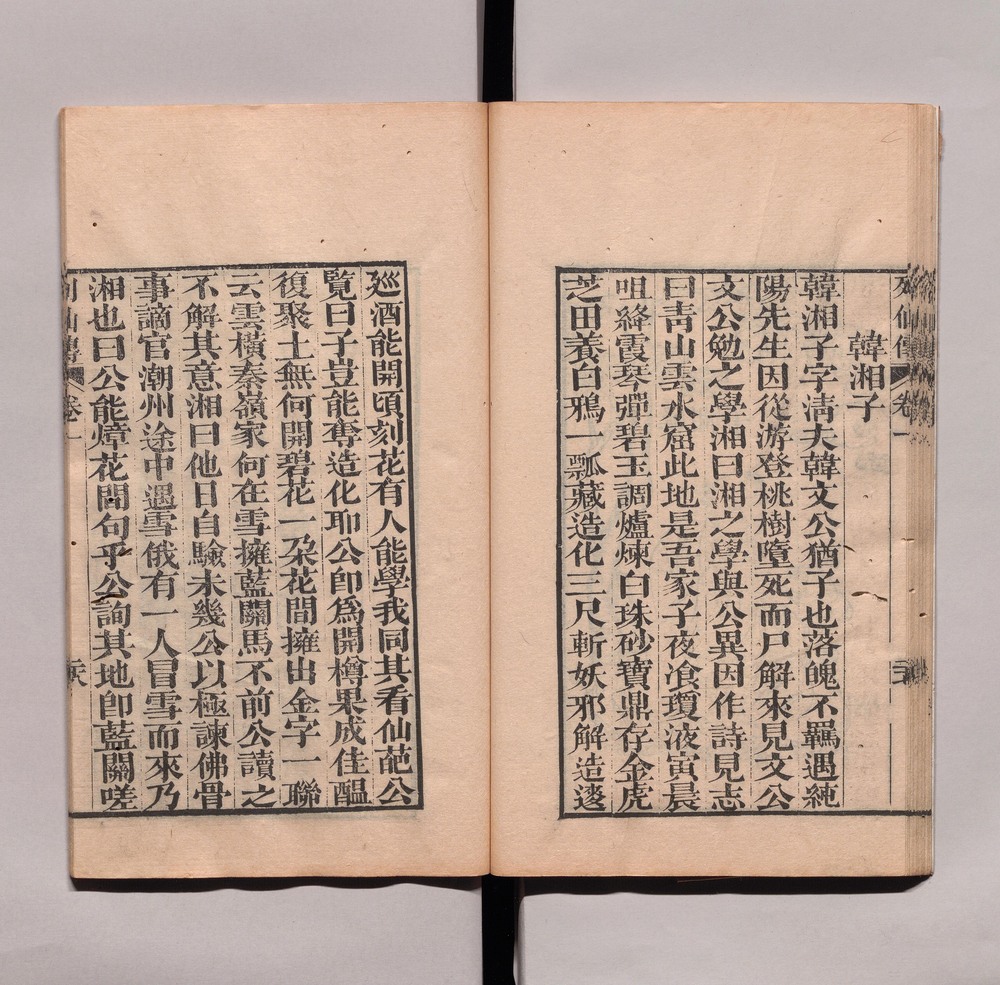 列仙傳 卷一
韓湘子
韓湘子字淸夫韓文公猶子也落魄不羈遇純
陽先生因從游登桃樹墮死而尸解來見文公
文公勉之學湘曰湘之學與公異因作詩見志
曰靑山雲水窟此地是吾家子夜飡瓊液寅晨
咀絳霞琴彈碧玉調爐煉白珠砂寶鼎存金虎
芝田養白鴉一瓢藏造化三尺斬妖邪解造逡
廵酒能開頃刻花有人能學我同其看仙葩公
覽曰子豈能奪造化耶公卽爲開樽果成佳醞
復聚土無何開碧花一朶花間擁出金字一聯
云雲橫秦嶺家何在雪擁藍關馬不前公讀之
不解其意湘曰他日自驗未幾公以極諫佛骨
事謫官潮州途中遇雪俄有一人冒雪而來乃
湘也曰公能憶花間句乎公詢其地卽藍關嗟
列仙傳 卷一